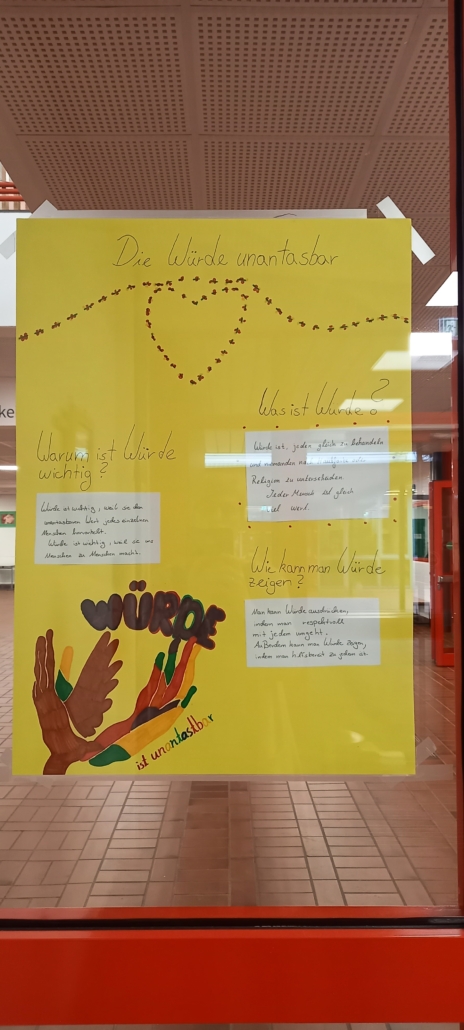 Die Würde unantasbar
Was ist Würde?
Würde ist, jeden gleich zu behandeln
und niemanden nach
Religion zu unterscheiden.
Jeder Mensch ist gleich
viel wert.
Warum ist Würde
wichtig?
Würde ist wichtig, weil sie den
unantastbaren Wert jedes einzelnen
Menschen
Würde ist wichtig, weil sie uns
Menschen zu Menschen macht.
Wie kann man Würde
zeigen?
Man kann Würde ausdrücken,
indem man respektvoll
mit jedem umgeht.
Außerdem kann man Würde zeigen,
indem man hilfsbereit zu jedem ist.
WÜRDE
ist unantastbar
ke